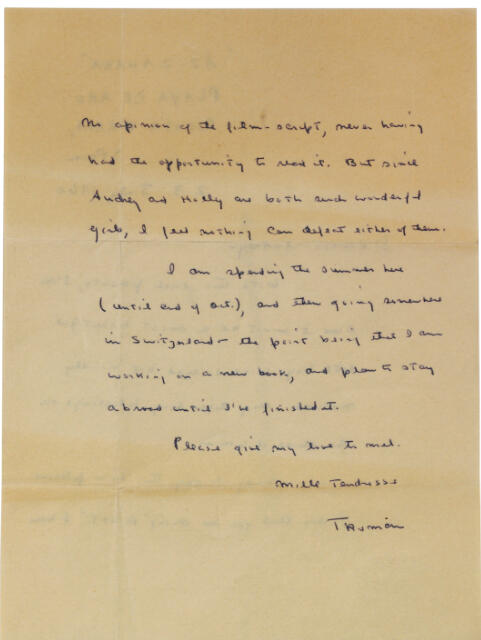 no opinion of the film-script, never having
had the opportunity to read it. But since
Audrey and Holly are both such wonderful
girls, I feel nothing can defeat either of them.
I am spending the summer here
(until end of Oct.), and then going somewhere
in Switzerland - the point being that I am
working on a new book, and plan to stay
abroad until I've finished it.
Please give my love to Mel.
Mille Tendresse
Truman